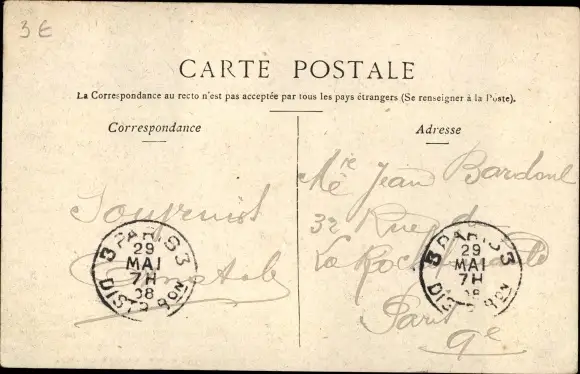 3 E
CARTE POSTALE
La Correspondance au recto n'est pas acceptée par tous les pays étrangers (Se renseigner à la Poste).
Correspondance
Adresse
Jean
32 Rue
La
Paris
9e
3 PARIS 3
29
MAI
7H
08
DISTRIBON
3 PARIS 3
29
MAI
7H
08
DISTRIBON